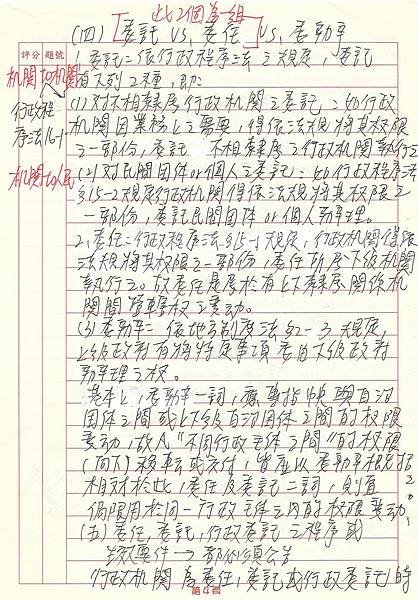 此2個為一組
(四) [委託 vs. 委任] vs. 委辦
評分 題號
1. 委託：依行政程序法之規定，委託
機關to機關
有下列2種，即：
行政程序法16-1
(1) 對不相隸屬行政機關之委託：如行政
機關因業務上之需要，得依法規將其權限
之一部份，委託不相隸屬之行政機關執行之
機關to人民
(2) 對民間団体or個人之委託：如行政程序法
行政機關得依法規將其權限之
一部份，委託民間団体or個人辦理。
2. 委任：行政程序法§15-1規定，行政機關得依
法規將其權限之一部份，委任所屬下級機關
執行之。故委任是屬於有上下隸屬關係機
關間管轄權之變動。
(3) 委辦：依地方制度法§2-3規定，
上級政府有將特定事項委由下級政府
辦理之權。
基本上，委辦一詞，應專指中央與自治
団体之間或上下級自治団体之間的權限
變動，故凡"不同行政主体之間"的權限
(向下)移轉或交付，皆應以委辦相稱
相對於此，委任及委託二詞，則宜
侷限用於同一行政主体之內的權限變動
(五) 委任、委託，行政委託之程序或
生效要件→都必須公告
行政機關為委任、委託或行政委託時
第4頁